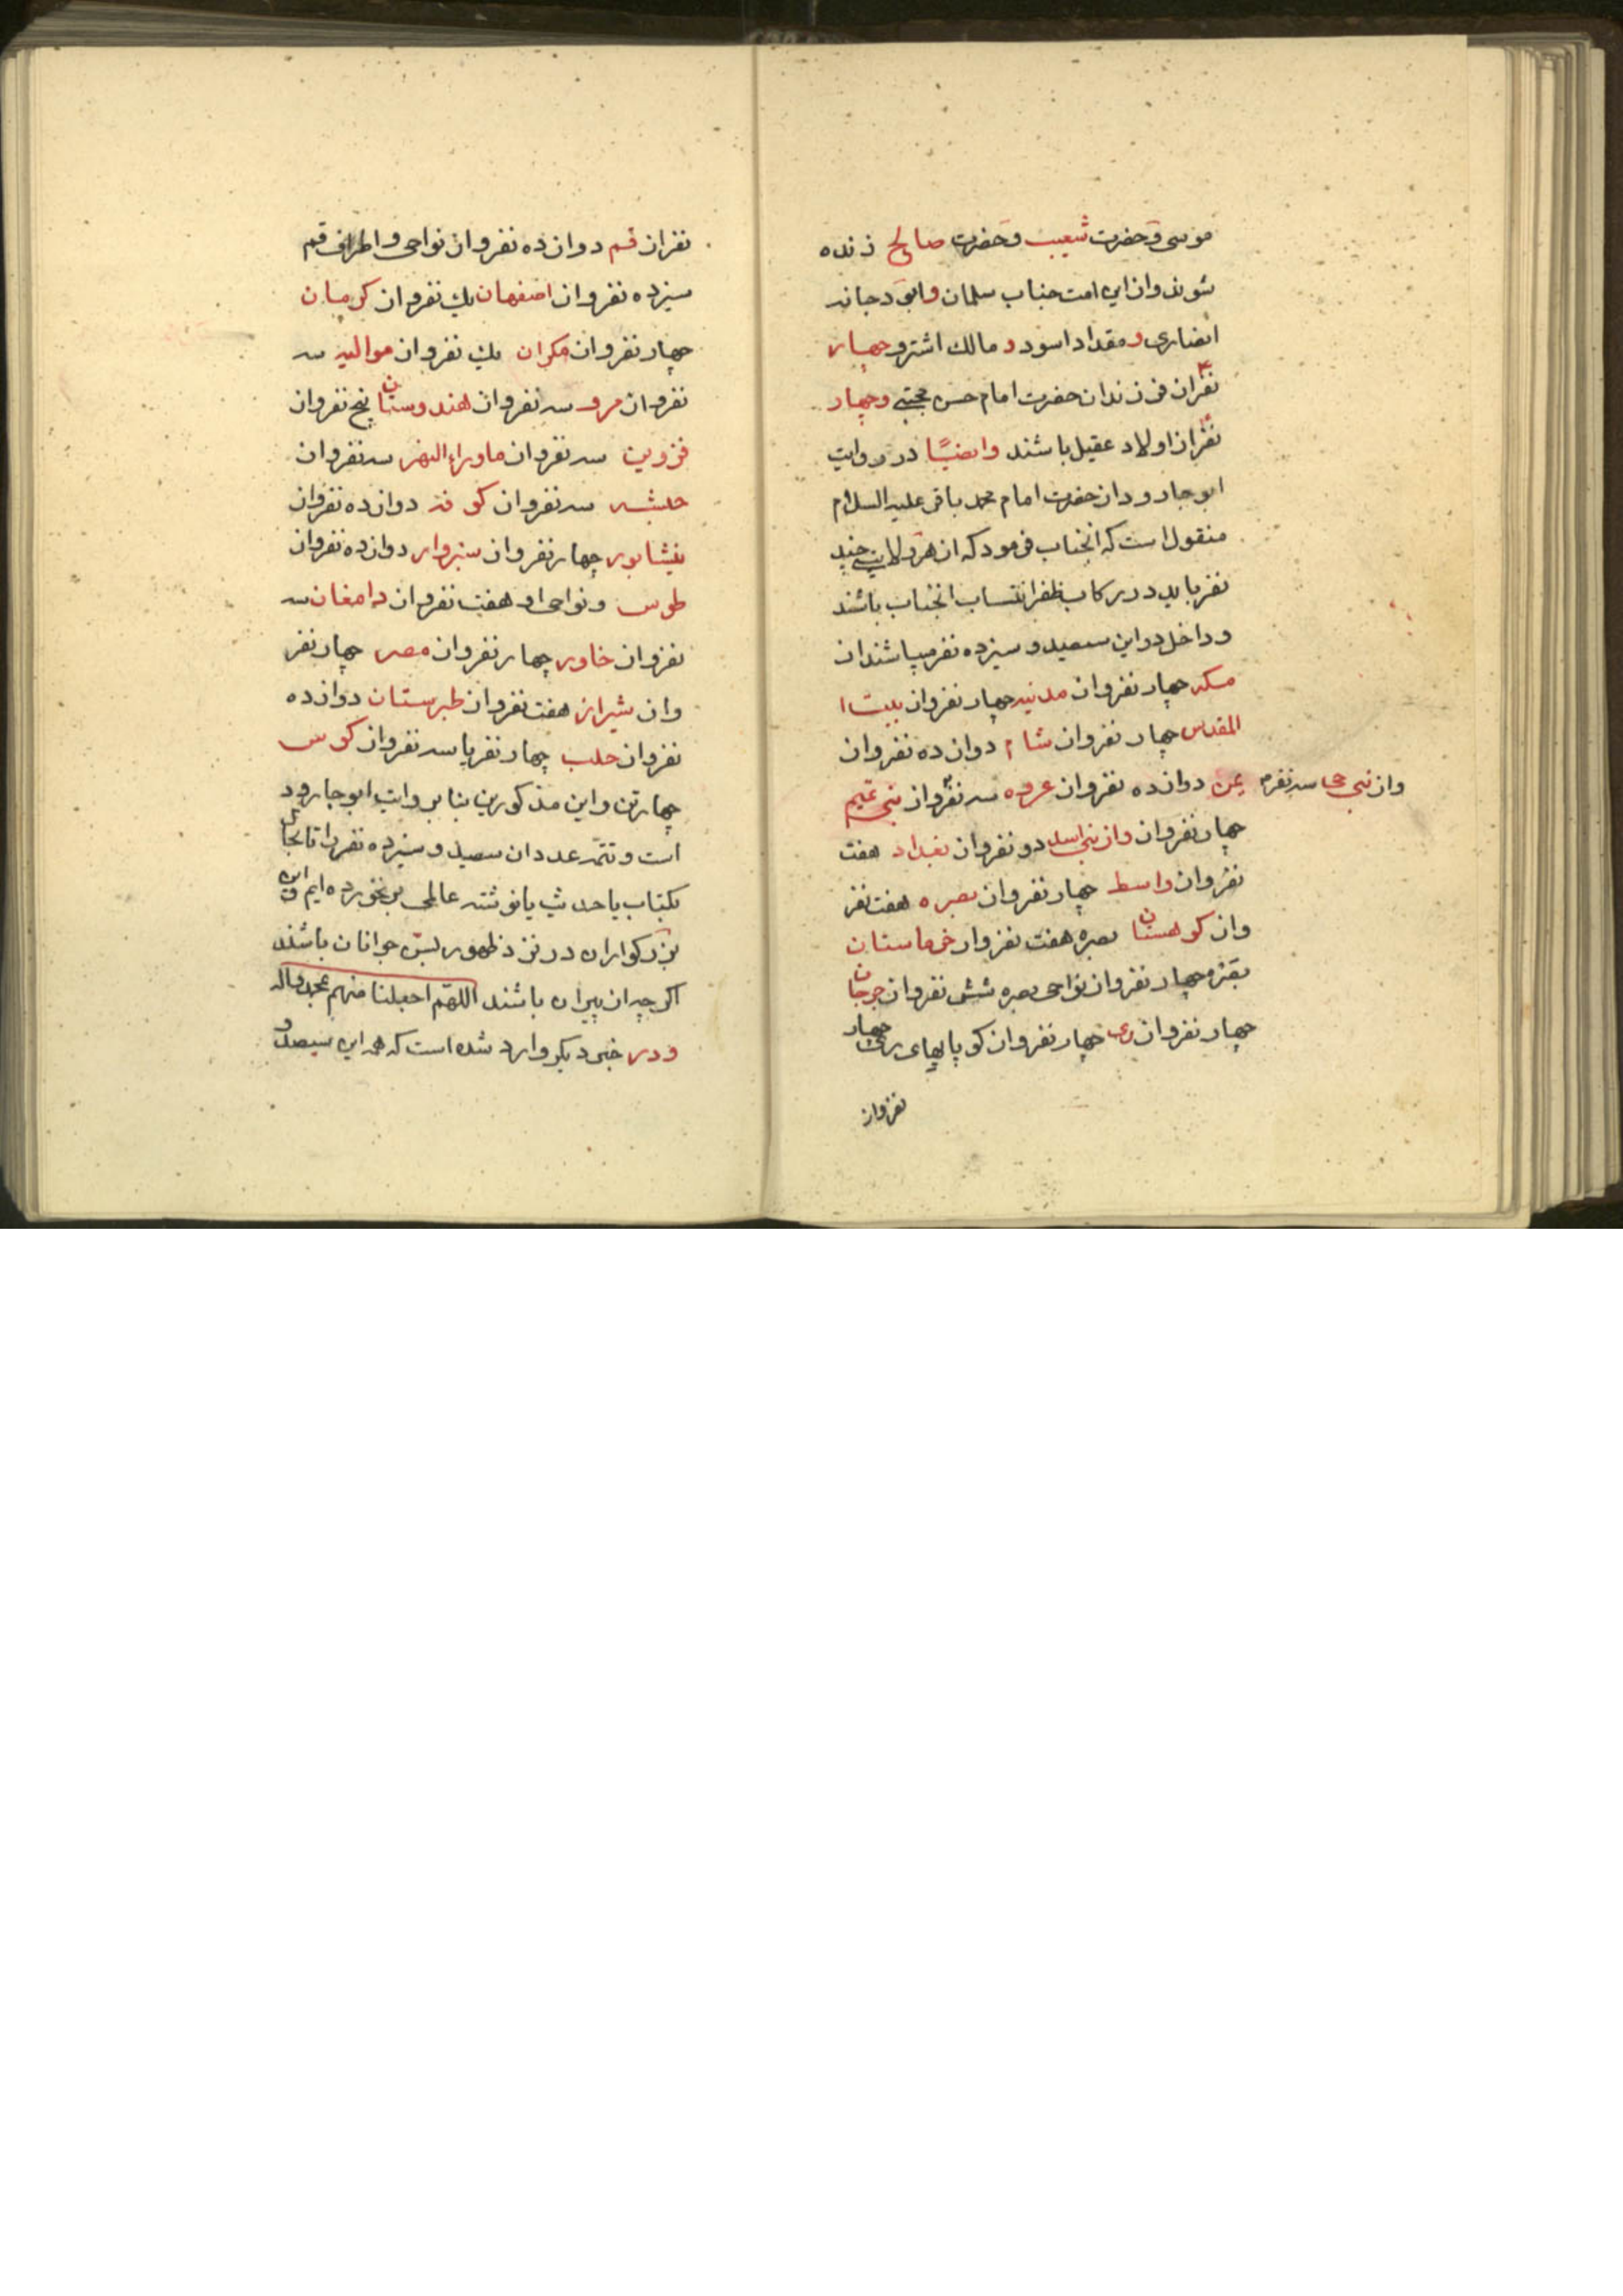 موسی و حضرت شعیب و حضرت صالح زنده
شوند و از این امت جناب سلمان و ابی دجانه
انصاری و مقداد اسود و مالک اشتر و چهار
نفر از فرزندان حضرت امام حسن مجتبی و چهار
نفر از اولاد عقیل باشند و ایضیًا در روایت
ابو جارود از حضرت امام محمد باقر علیه السلام
منقول است که انجناب فرمود که از هر ولایتی چند
نفر باید در رکاب ظفر انتساب انجناب باشند
و داخل در این سیصد و سیزده نفر میباشند از
مکه چهار نفر و از مدنیه چهار نفر و از بیت ا
المقدس چهار نفر و از شام دوازده نفر و از
یمن دوازده نفر و از عروه سه نفر و از بنی تمیم
و از بنی حی سه نفر
چهار نفر و از و از بنی اسد دو نفر و از بغداد هفت
نفر و از واسط چهار نفر و از بصره هفت نفر
و از کوهستان بصره هفت نفر و از خرماستان
چهار نفر و از نواحی بصره شش نفر و از جرجان
چهار نفر و از ری چهار نفر و از کوپایهای ری چهار
نفر و از
نفر از قم دوازده نفر و از نواحی و اطراف قم
سیزده نفر و از اصفهان یک نفر و از کرمان
چهار نفر و از مکران یک نفر و از موالیه سه
نفر و از مرو سه نفر و از هندوستان پنج نفر و از
قزوین سه نفر و از ماوراء النهر سه نفر و از
حبشه سه نفر و از کوفه دوازده نفر و از
نیشابور چهار نفر و از سبزوار دوازده نفر و از
طوس و نواحی او هفت نفر و از دامغان سه
نفر و از خاور چهار نفر و از مصر چهار نفر
و از شیراز هفت نفر و از طبرستان دوازده
نفر و از حلب چهار نفر یا سه نفر و از کوس
چهار تن و این مذکورین بنا بر وایت ابو جارود
است و تتمه عدد ان سیصد و سیزده نفر را تا بحال
بکتاب یا حدیث یا نوشته عالمی بر نخورده ایم و این
بزرکواران در نزد ظهور بسن جوانان باشند
اکرچه از پیران باشند اللهم اجعلنا منهم بمحمد و اله
و در خبر دیکر وارد شده است که همه این سیصد و